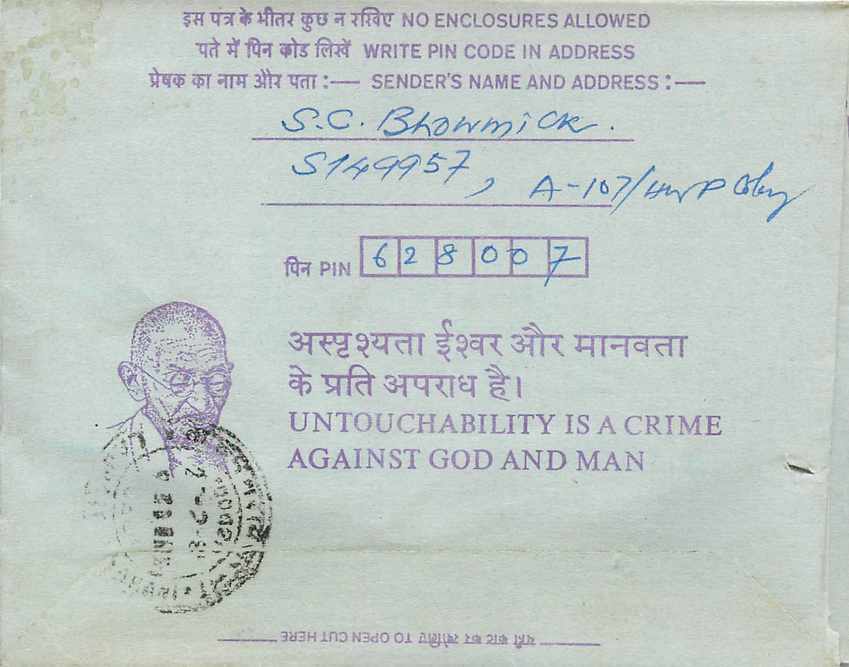 इस पत्र के भीतर कुछ न रखिए NO ENCLOSURES ALLOWED
पते में पिन कोड लिखें WRITE PIN CODE IN ADDRESS
प्रेषक का नाम और पता :— SENDER'S NAME AND ADDRESS :—
S.C. Bhowmick.
S149957, A-107/HWP Colony
पिन PIN 628007
अस्पृश्यता ईश्वर और मानवता
के प्रति अपराध है।
UNTOUCHABILITY IS A CRIME
AGAINST GOD AND MAN
यहाँ काट कर खोलिए TO OPEN CUT HERE